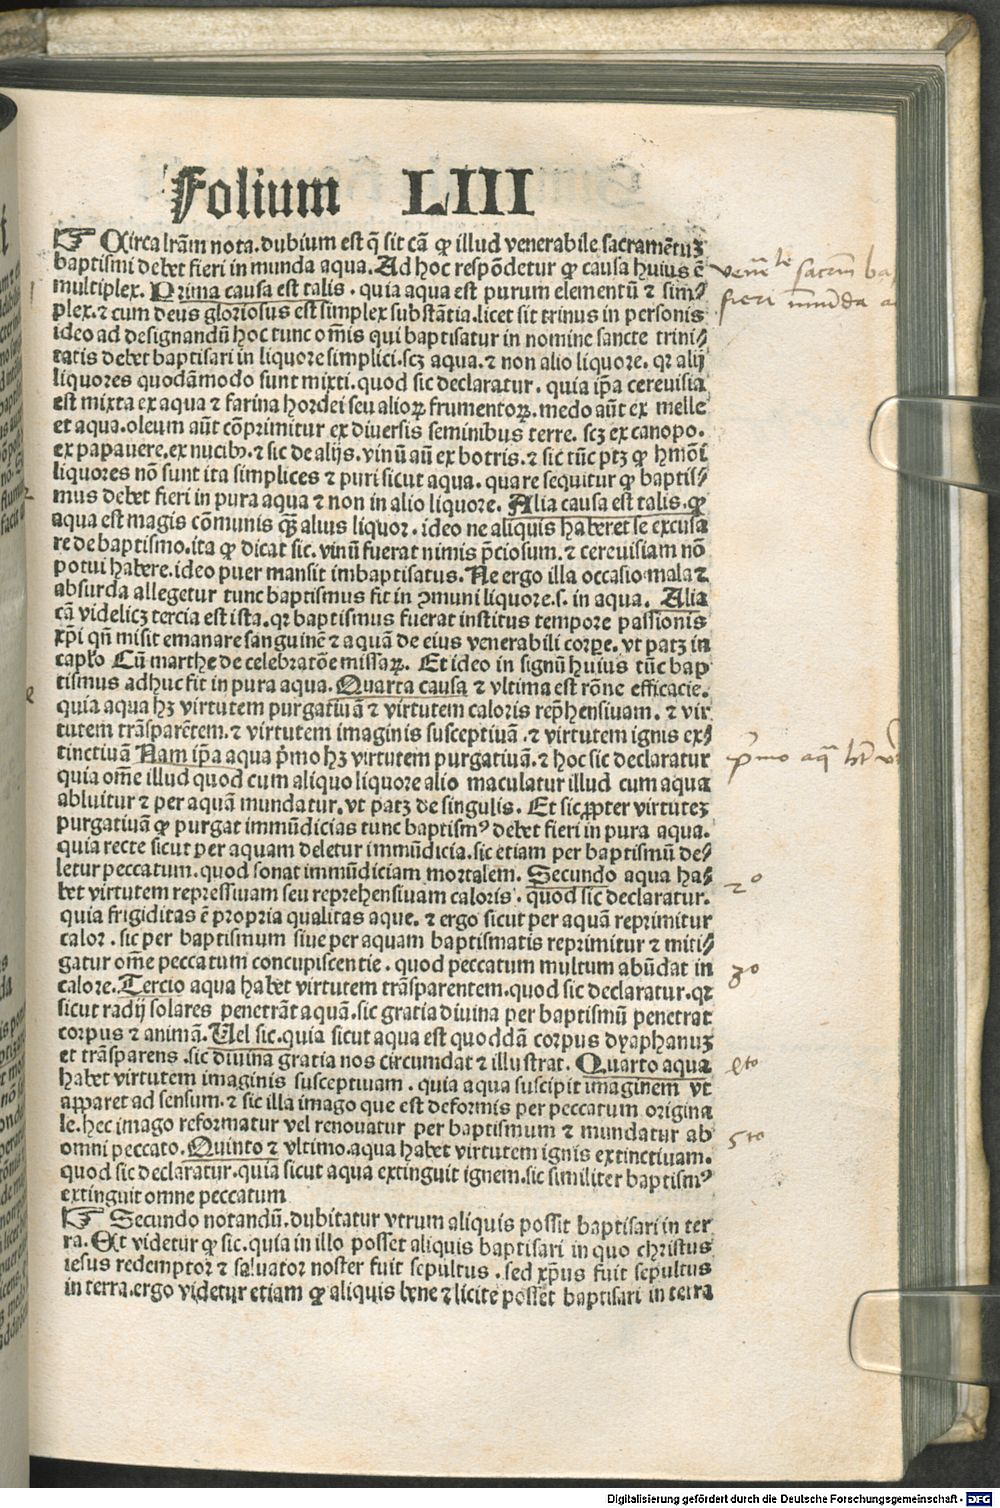 Folium LIII
☞ Circa lr̄am nota. dubium est q̄ sit cā ꝙ illud venerabile sacramētuꝫ
baptismi debet fieri in munda aqua. Ad hoc respōdetur ꝙ causa huius ē
multiplex. Prima causa est talis. quia aqua est purum elementū ⁊ sim⸗
plex. ⁊ cum deus gloriosus est simplex substātia. licet sit trinus in personis
ideo ad designandū hoc tunc om̄is qui baptisatur in nomine sancte trini⸗
tatis debet baptisari in liquore simplici. scꝫ aqua. ⁊ non alio liquore. qꝛ alij
liquores quodāmodo sunt mixti. quod sic declaratur. quia ip̄a cereuisia
est mixta ex aqua ⁊ farina hordei seu alioꝝ frumentoꝝ. medo aūt ex melle
et aqua. oleum aūt cōprimitur ex diuersis seminibus terre. scꝫ ex canopo.
ex papauere. ex nucibꝫ. ⁊ sic de alijs. vinū aū ex botris. ⁊ sic tūc ptꝫ ꝙ hmōi
liquores nō sunt ita simplices ⁊ puri sicut aqua. quare sequitur ꝙ baptis⸗
mus debet fieri in pura aqua ⁊ non in alio liquore. Alia causa est talis. ꝙ
aqua est magis cōmunis qꝫ̄ alius liquor. ideo ne aliquis haberet se excusa
re de baptismo. ita ꝙ dicat sic. vinū fuerat nimis p̄ciosum. ⁊ cereuisiam nō
potui habere. ideo puer mansit imbaptisatus. Ne ergo illa occasio mala ⁊
absurda allegetur tunc baptismus fit in ꝯmuni liquore. s. in aqua. Alia
cā videlicꝫ tercia est ista. qꝛ baptismus fuerat institus tempore passionis
xp̄i qn̄ misit emanare sanguinē ⁊ aquā de eius venerabili corꝑe. vt patꝫ in
cap̄lo Cū marthe de celebratōe missaꝝ. Et ideo in signū huius tūc bap
tismus adhuc fit in pura aqua. Quarta causa ⁊ vltima est rōne efficacie.
quia aqua hꝫ virtutem purgatiuā ⁊ virtutem caloris rep̄hensiuam. ⁊ vir
tutem trāsparētem. ⁊ virtutem imaginis susceptiuā. ⁊ virtutem ignis ex⸗
tinctiuā Nam ip̄a aqua p̄mo hꝫ virtutem purgatiuā. ⁊ hoc sic declaratur
quia om̄e illud quod cum aliquo liquore alio maculatur illud cum aqua
abluitur ⁊ per aquam mundatur. vt patꝫ de singulis. Et sic ꝓpter virtuteꝫ
purgatiuā ꝙ purgat immūdicias tunc baptismꝰ debet fieri in pura aqua.
quia recte sicut per aquam deletur immūdicia. sic etiam per baptismū de⸗
letur peccatum. quod sonat immūdiciam mortalem. Secundo aqua ha⸗
bet virtutem repressiuam seu reprehensiuam caloris. quod sic declaratur.
quia frigiditas ē propria qualitas aque. ⁊ ergo sicut per aquā reprimitur
calor. sic per baptismum siue per aquam baptismatis reprimitur ⁊ miti⸗
gatur om̄e peccatum concupiscentie. quod peccatum multum abūdat in
calore. Tercio aqua habet virtutem trāsparentem. quod sic declaratur. qꝛ
sicut radij solares penetrāt aquā. sic gratia diuina per baptismū penetrat
corpus ⁊ animā. Uel sic. quia sicut aqua est quoddā corpus dyaphanuꝫ
et trāsparens. sic diuina gratia nos circumdat ⁊ illustrat. Quarto aqua
habet virtutem imaginis susceptiuam. quia aqua suscipit imaginem vt
apparet ad sensum. ⁊ sic illa imago que est deformis per peccatum origina
le. hec imago reformatur vel renouatur per baptismum ⁊ mundatur ab
omni peccato. Quinto ⁊ vltimo. aqua habet virtutem ignis extinctiuam.
quod sic declaratur. quia sicut aqua extinguit ignem. sic similiter baptismꝰ
extinguit omne peccatum
☞ Secundo notandū. dubitatur vtrum aliquis possit baptisari in ter
ra. Et videtur ꝙ sic. quia in illo posset aliquis baptisari in quo christus
iesus redemptor ⁊ saluator noster fuit sepultus. sed xp̄us fuit sepultus
in terra. ergo videtur etiam ꝙ aliquis bene ⁊ licite posset baptisari in terra
sacr̄m ba
fieri munda a
p̄mo aq̄ ht̄
2º
3º
4to
5to
Digitalisierung gefördert durch die Deutsche Forschungsgemeinschaft - DFG